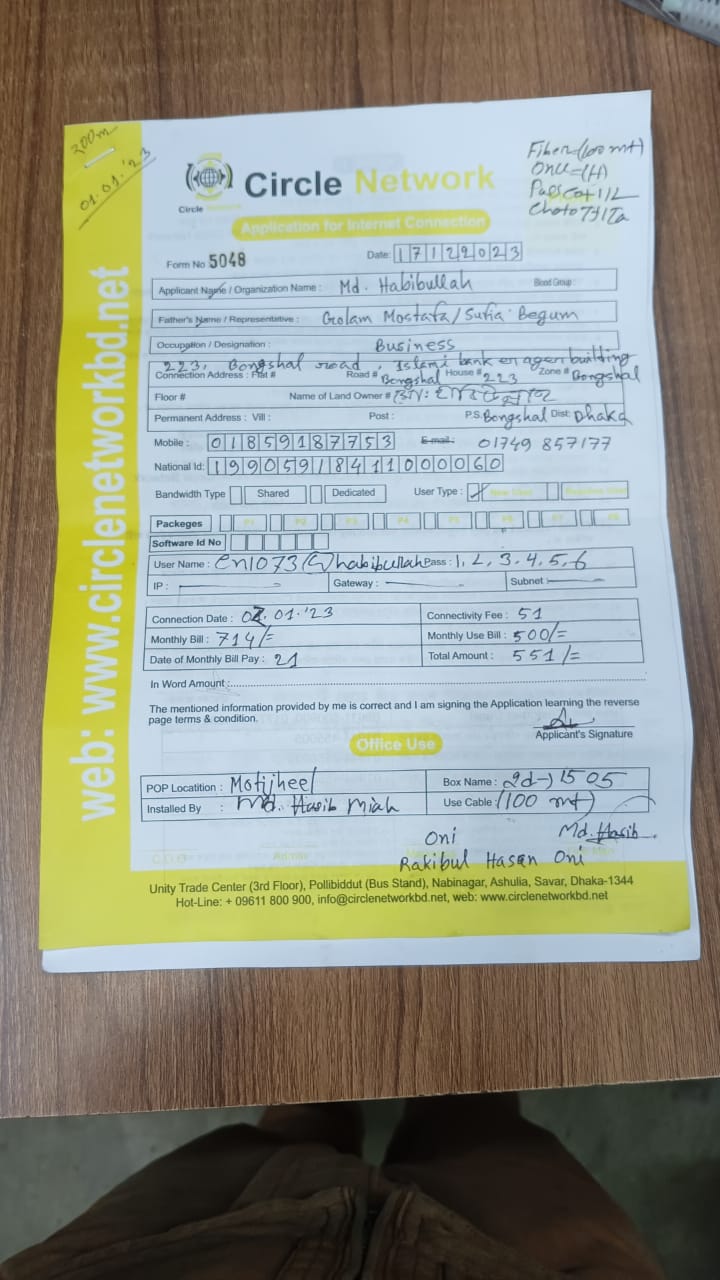 200m
01.01.'23
Fiber=(100 mt)
Onu=(H)
Circle Network
Circle
Application for Internet Connection
Form No 5048
Date: 17122023
Applicant Name / Organization Name : Md. Habibullah Blood Group :
Father's Name / Representative : Golam Mostafa/Sufia Begum
Occupation / Designation : Business
223, Bongshal road, Islami bank building
Connection Address : Flat # Road # Bongshal House # 223 Zone # Bongshal
Floor # Name of Land Owner #
Permanent Address : Vill : Post : P.S. Bongshal Dist: Dhaka
Mobile : 01859187753 E-mail: 01749 857177
National Id: 19905918411000060
Bandwidth Type Shared Dedicated User Type : New User
Packeges P1 P2 P3 P4 P5 P6 P7 P8
Software Id No
User Name : en1073@habibullah Pass : 1, 2, 3, 4, 5, 6
IP : Gateway : Subnet :
Connection Date : 02.01.'23 Connectivity Fee : 51
Monthly Bill : 714/= Monthly Use Bill : 500/=
Date of Monthly Bill Pay : 21 Total Amount : 551/=
In Word Amount :
The mentioned information provided by me is correct and I am signing the Application learning the reverse
page terms & condition.
Applicant's Signature
Office Use
POP Locatition : Motijheel Box Name : 2d→1505
Installed By : Md. Hasib Miah Use Cable : (100 mt)
Oni Md. Hasib
Rakibul Hasan Oni
Unity Trade Center (3rd Floor), Pollibiddut (Bus Stand), Nabinagar, Ashulia, Savar, Dhaka-1344
Hot-Line: + 09611 800 900, info@circlenetworkbd.net, web: www.circlenetworkbd.net
web: www.circlenetworkbd.net